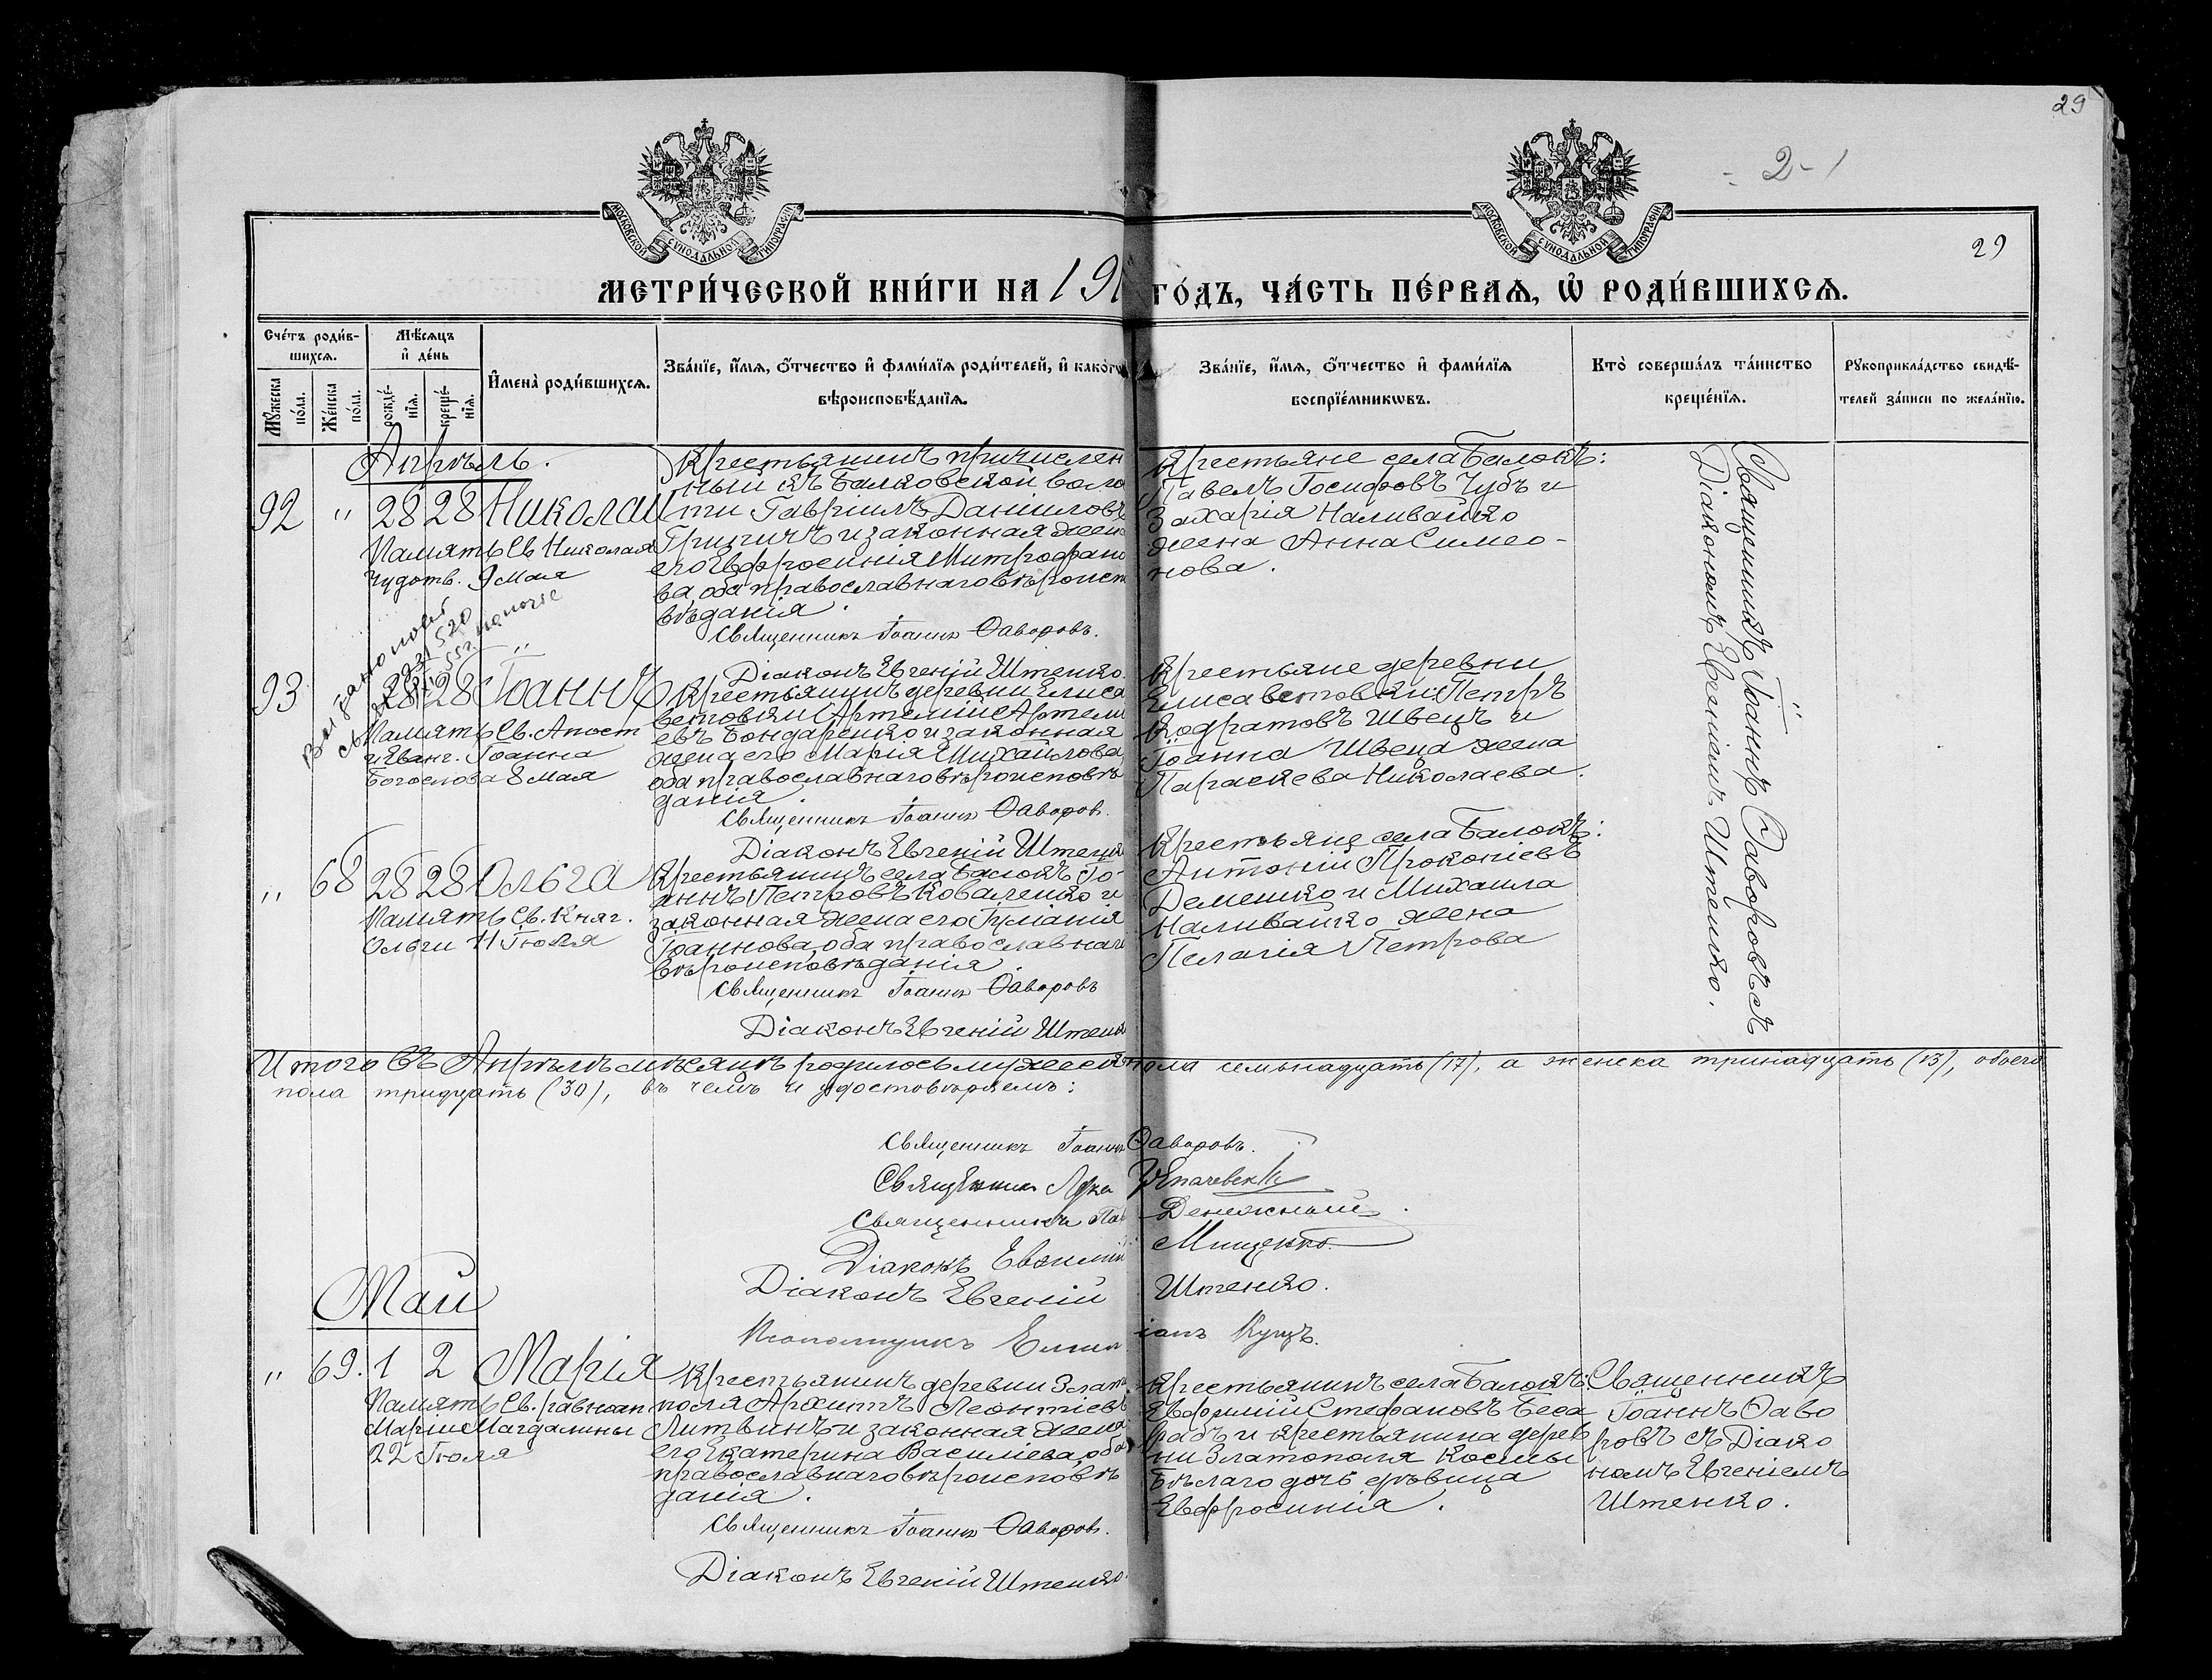 29
- 2 - 1
29
МОСКОВСКОЙ СѴНОДАЛЬНОЙ ТИПОГРАФІИ
МОСКОВСКОЙ СѴНОДАЛЬНОЙ ТИПОГРАФІИ
МЕТРИ́ЧЕСКОЙ КНИ́ГИ НА 191 ГО́ДЪ, ЧА́СТЬ ПЕ́РВАѦ, Ѽ РОДИ́ВШИХСѦ.
Сче́тъ роди́в-
шихсѧ.
Мꙋ́жеска по́ла.
Же́нска по́ла.
Мѣ́сѧцъ
и҆ де́нь
рожде́-
нїѧ.
креще́-
нїѧ.
И҆мена̀ роди́вшихсѧ.
Зва́нїе, и҆́мѧ, ѻ҆́тчество и҆ фами́лїѧ роди́телей, и҆ како́гѡ
вѣроисповѣ́данїѧ.
Зва́нїе, и҆́мѧ, ѻ҆́тчество и҆ фами́лїѧ
воспрїе́мникѡвъ.
Кто̀ соверша́лъ та́инство
креще́нїѧ.
Рꙋкоприкла́дство свидѣ́-
телей за́писи по жела́нїю.
Апрѣль.
92 " 28 28 Николай
Память Св. Николая
Чудотв. 9 Мая
Крестьянинъ причислен
ный къ Балковской воло
сти Гавріилъ Даніиловъ
Грицичъ и законная жена
его Евфросинія Митрофано
ва, оба православнаго вѣроиспо
вѣданія.
Священникъ Іоаннъ Ѳаворовъ.
Діаконъ Евгеній Штенко.
Крестьяне села Балокъ:
Павелъ Іосифовъ Чубъ и
Захарія Наливайко
жена Анна Симео-
нова.
Священникъ Іоаннъ Ѳаворовъ съ
Діакономъ Евгеніемъ Штенко.
93 " 28 28 Іоаннъ
Память Св. Апост
и Еванг. Іоанна
Богослова 8 Мая
Крестьянинъ деревни Елиса
ветовки Артемій Артемі
евъ Бондаренко и законная
жена его Марія Михайлова,
оба православнаго вѣроисповѣ
данія.
Священникъ Іоаннъ Ѳаворов.
Діаконъ Евгеній Штенко
Крестьяне деревни
Елисаветовки: Петръ
Кодратовъ Швецъ и
Іоанна Швеца жена
Параскева Николаева.
" 68 28 28 Ольга
Память Св. Княг.
Ольги 11 Іюля
Крестьянинъ села Балокъ Іо-
аннъ Петровъ Коваленко и
законная жена его Іуліанія
Іоаннова, оба православнаго
вѣроисповѣданія.
Священникъ Іоаннъ Ѳаворовъ
Діаконъ Евгеній Штенко
Крестьяне села Балокъ:
Антоній Прокопіевъ
Демешко и Михаила
Наливайко жена
Пелагія Петрова
Итого въ Апрѣлѣ мѣсяцѣ родилось мужеска пола семьнадцать (17), а женска тринадцать (13), обоего
пола тридцать (30), въ чемъ и удостовѣряемъ:
Священникъ Іоаннъ Ѳаворовъ.
Священник Лука
Священникъ Денежный.
Діаконъ Евфимій Мищенко.
Діаконъ Евгеній Штенко.
Псаломщикъ Куцъ.
Май
" 69. 1 2 Марія
Память Св. равноап
Маріи Магдалины
22 Іюля
Крестьянинъ деревни Злато
поля Архиппъ Леонтіевъ
Литвинъ и законная жена
его Екатерина Василіева, оба
православнаго вѣроисповѣ
данія.
Священникъ Іоаннъ Ѳаворов.
Діаконъ Евгеній Штенко.
Крестьянинъ села Балокъ:
Евфимій Стефановъ Беса
рабъ и крестьянина дерев
ни Златополя Космы
Бѣлаго дочь дѣвица
Евфросинія.
Священникъ
Іоаннъ Ѳаво
ровъ съ Діако
номъ Евгеніемъ
Штенко.